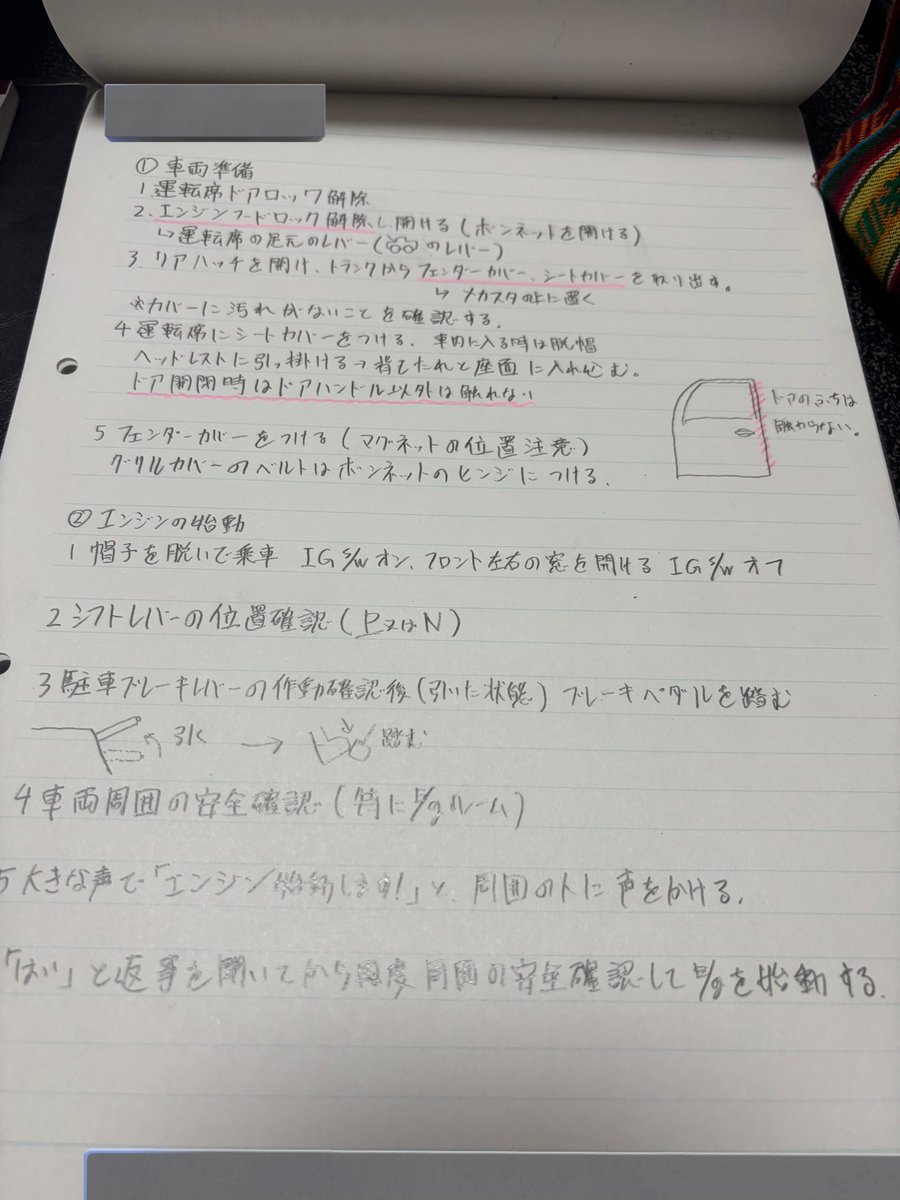 ① 車両準備
1.運転席ドアロック解除
2.エンジンフードロック解除し開ける(ボンネットを開ける)
↳運転席の足元のレバー(のレバー)
3.リアハッチを開け、トランクからフェンダーカバー、シートカバーを取り出す。
↳メカスタの上に置く
※カバーに汚れがないことを確認する。
4運転席にシートカバーをつける。車内に入る時は脱帽
ヘッドレストに引っ掛ける→背もたれと座面に入れ込む。
ドア開閉時はドアハンドル以外は触れない
ドアのふちは
触わらない。
5フェンダーカバーをつける(マグネットの位置注意)
グリルカバーのベルトはボンネットのヒンジにつける.
② エンジンの始動
1 帽子を脱いで乗車 IG S/W オン、フロント左右の窓を開ける IG S/W オフ
2シフトレバーの位置確認(P又はN)
3駐車ブレーキレバーの作動確認後(引いた状態)ブレーキペダルを踏む
引く → 踏む
4車両周囲の安全確認(特にE/gルーム)
5大きな声で「エンジン始動します!」と、周囲の人に声をかける.
「はい」と返事を聞いてから再度周囲の安全確認してE/gを始動する.